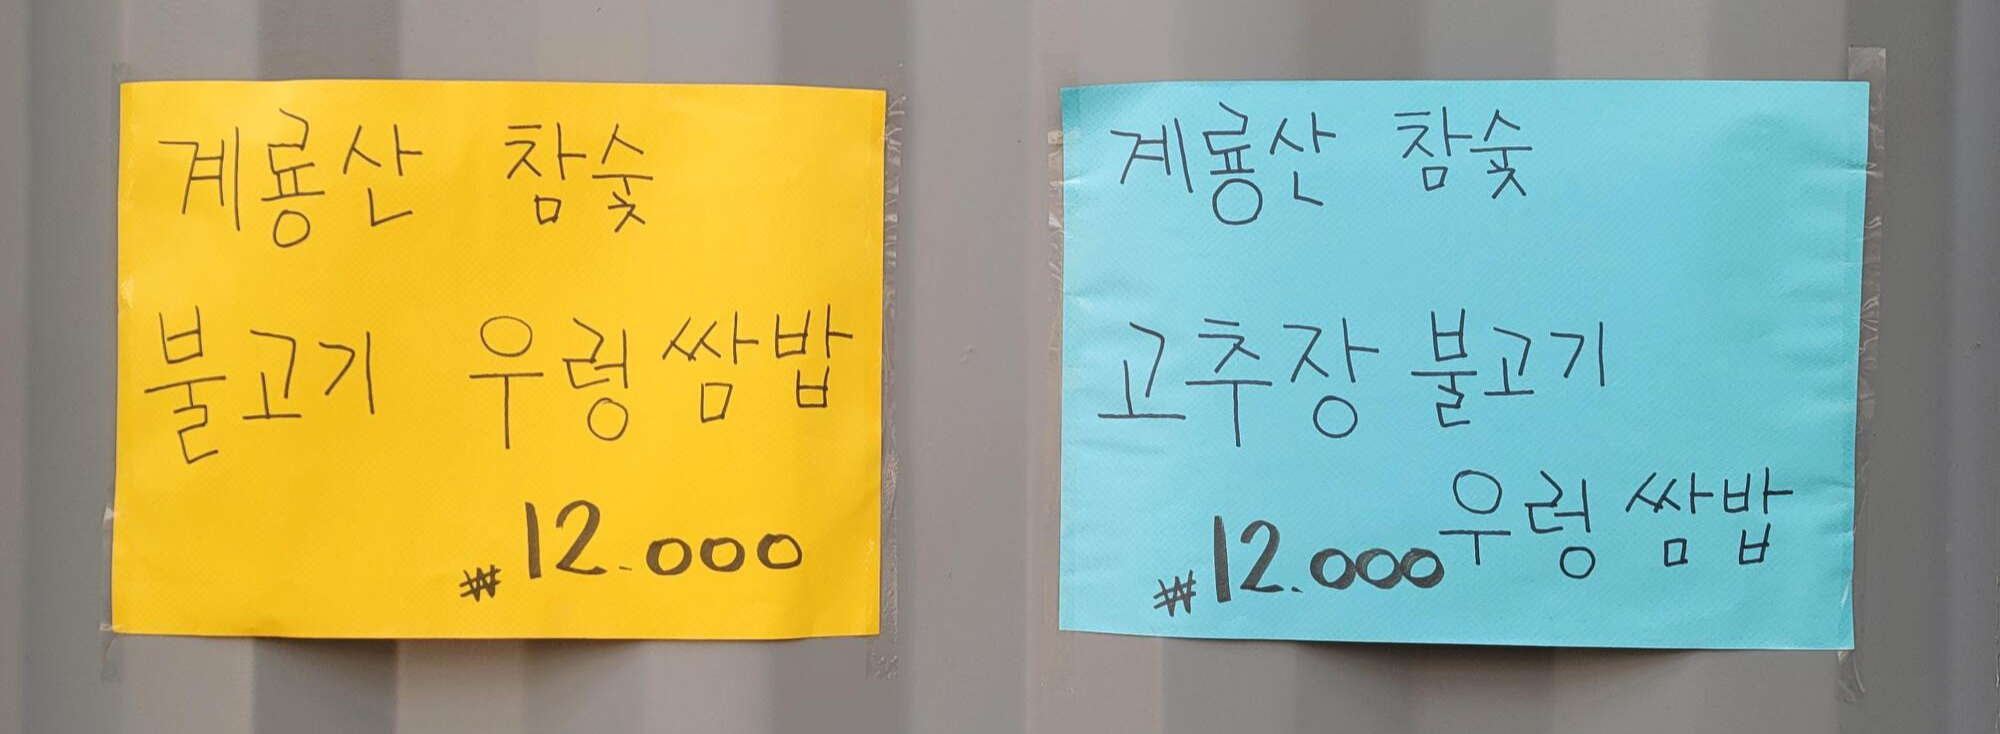 계룡산 참숯
불고기 우렁쌈밥
₩12.000
계룡산 참숯
고추장 불고기
우렁 쌈밥
₩12.000